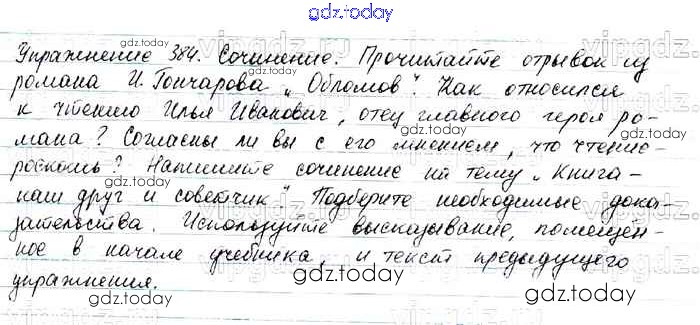 gdz.today
Упражнение 384. Сочинение. Прочитайте отрывок из
романа И. Гончарова „Обломов". Как относился
к чтению Илья Иванович, отец главного героя ро-
мана? Согласны ли вы с его мнением, что чтение-
роскошь? Напишите сочинение на тему „Книга-
наш друг и советчик". Подберите необходимые дока-
зательства. Используйте высказывание, помещен-
ное в начале учебника, и текст предыдущего
упражнения.
gdz.today